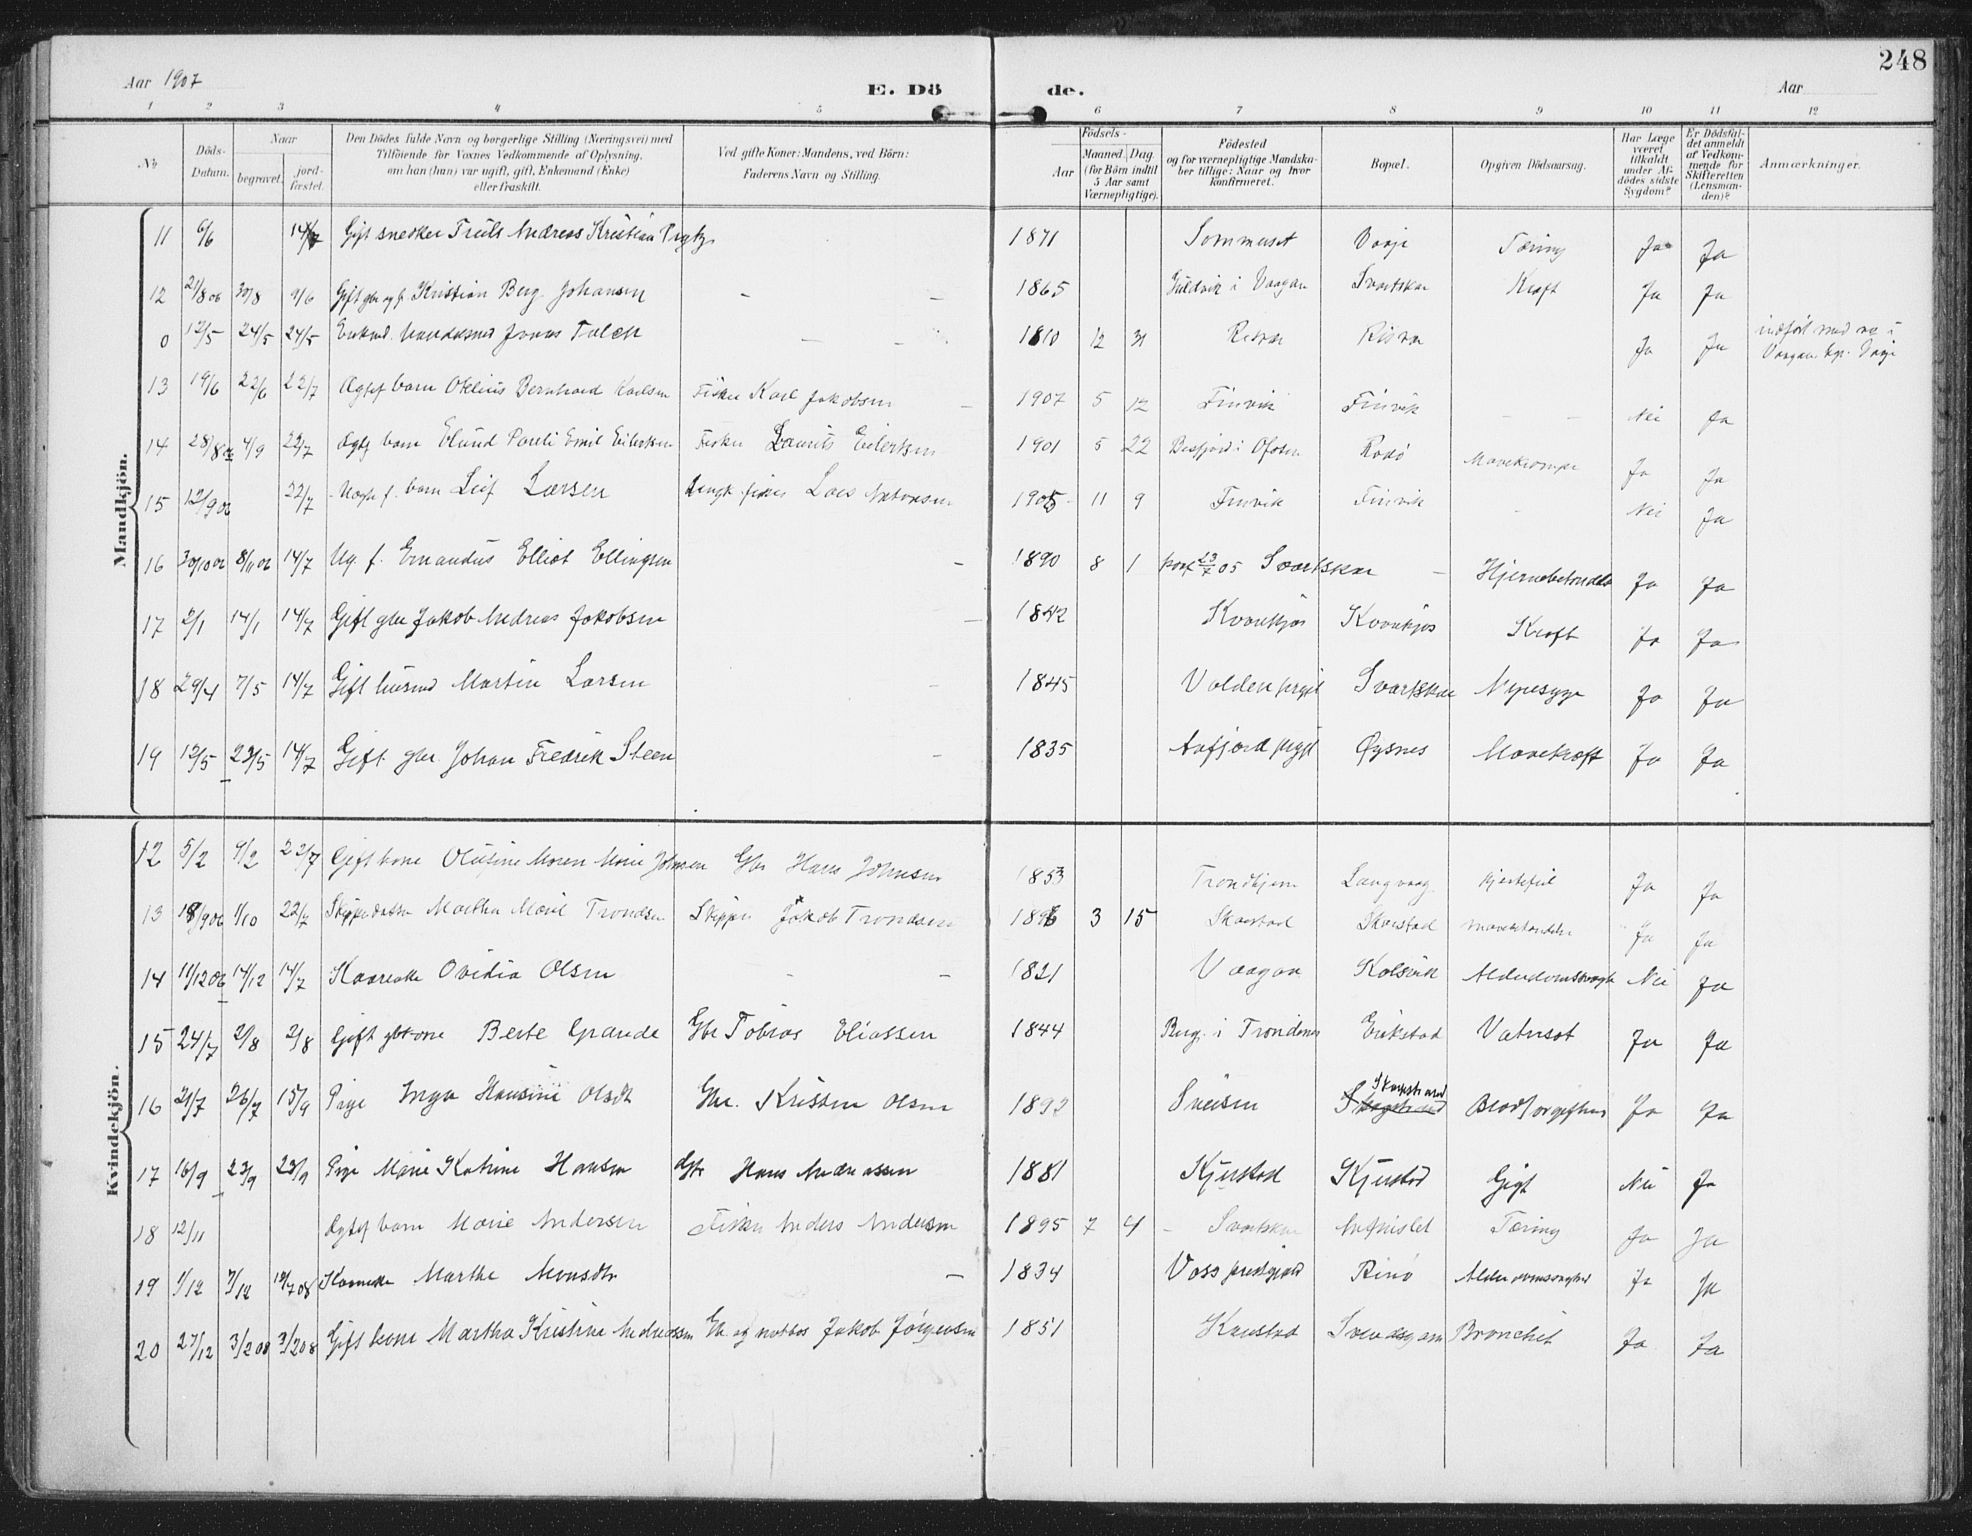 248
Aar 1907 E. Dö de. Aar
1 2 3 4 5 6 7 8 9 10 11 12
No Döds-Datum. Naar begravet. jordfæstet. Den Dödes fulde Navn og borgerlige Stilling (Næringsvei) med Tilföiende for Voxnes Vedkommende af Oplysning, om han (hun) var ugift, gift, Enkemand (Enke) eller fraskilt. Ved gifte Koner: Mandens, ved Börn: Faderens Navn og Stilling. Födsels- Aar Maaned. Dag (for Börn indtil 5 Aar samt Værnepligtige). Födested og for værnepligtige Mandskaber tillige: Naar og hvor konfirmeret. Bopæl. Opgiven Dödsaarsag. Har Læge været tilkaldt under Afdödes sidste Sygdom? Er Dödsfaldet anmeldt af Vedkommende for Skifteretten (Lensmanden)? Anmærkninger.
Mandkjön.
11 6/6 14/7 Gift snedker Truls Andreas Kristian 1871 Sommeset Tæring Ja Ja
12 21/8 06 30/8 9/6 Gift Kristian Berg Johansen - - 1865 i Vaagan Svartskar Kræft Ja Ja
0 12/5 24/5 24/5 Enkemd. Jonas Falch - - 1810 12 31 Risvær Risvær Ja Ja indført med no i Vaagan
13 19/6 22/6 22/7 Ægtef barn Otelius Bernhard Karlsen Fisker Karl Jakobsen - 1907 5 12 Finvik Finvik - - Nei Ja
14 28/8 06 4/9 22/7 Ægtf barn Elund Pauli Emil Eilertsen Fisker Laurits Eilertsen 1901 5 22 i Ofoten Rødø Mavekrampe Ja Ja
15 12/9 06 22/7 Uægte f. barn Leif Larsen Ungk fisker Lars Antonsen 1905 11 9 Finvik Finvik - Nei Ja
16 30/10 06 8/11 06 14/7 Ug. f. Emandus Elliot Ellingsen - 1890 8 1 konf 23/7 05 Svartskar - Hjernebetændelse Ja Ja
17 2/1 14/1 14/7 Gift gbr Jakob Andreas Jakobsen - 1842 Kvannkjos Kvannkjos Kræft Ja Ja
18 29/4 7/5 14/7 Gift husmd Martin Larsen - 1845 Volden prgjel Svartskar Nyresyge Ja Ja
19 12/5 23/5 14/7 Gift gbr Johan Fredrik Steen - 1835 Aafjord prgjl Øysnes Mavekræft Ja Ja
Kvindekjön.
12 5/2 9/2 22/7 Gift kone Olusine Maren Marie Johnsen Gbr Hans Johnsen 1853 Trondhjem Langvaag Hjertefeil Ja Ja
13 18/9 06 1/10 22/7 Skipperdatter Martha Marie Trondsen Skipper Jakob Trondsen 1896 3 15 Skarstad Skarstad Mavebetændelse Ja Ja
14 11/12 06 14/12 14/7 Kaarenke Ovidia Olsen - - 1821 Vaagan Kalsvik Alderdomssvaghed Nei Ja
15 24/7 2/8 2/8 Gift gbkone Berte Grande Gbr Tobias Eliassen 1844 Berg i Trondenes Erikstad Vatersot Ja Ja
16 21/7 26/7 15/9 Pige Inga Hansine Olsdt Gbr. Kristen Olsen 1892 Svensen Skagstrand Blodforgiftning Ja Ja
17 16/9 23/9 23/9 Pige Marie Katrine Hansen Gbr Hans Andreassen 1881 Kjerstad Kjerstad Gigt Nei Ja
18 12/11 Ægtef barn Marie Andersen Fisker Anders Andersen 1895 7 4 - Svartskar Tæring Ja Ja
19 1/12 7/12 12/7 08 Kaarenke Marthe Monsdtr - 1834 Voss prestgjeld Rinø Alderdomssvaghed Ja Ja
20 27/12 3/2 08 3/2 08 Gift kone Martha Kristine Andreassen Gbr og notbas Jakob Jørgensen 1851 Kanstad Svendsgam Bronchit Ja Ja